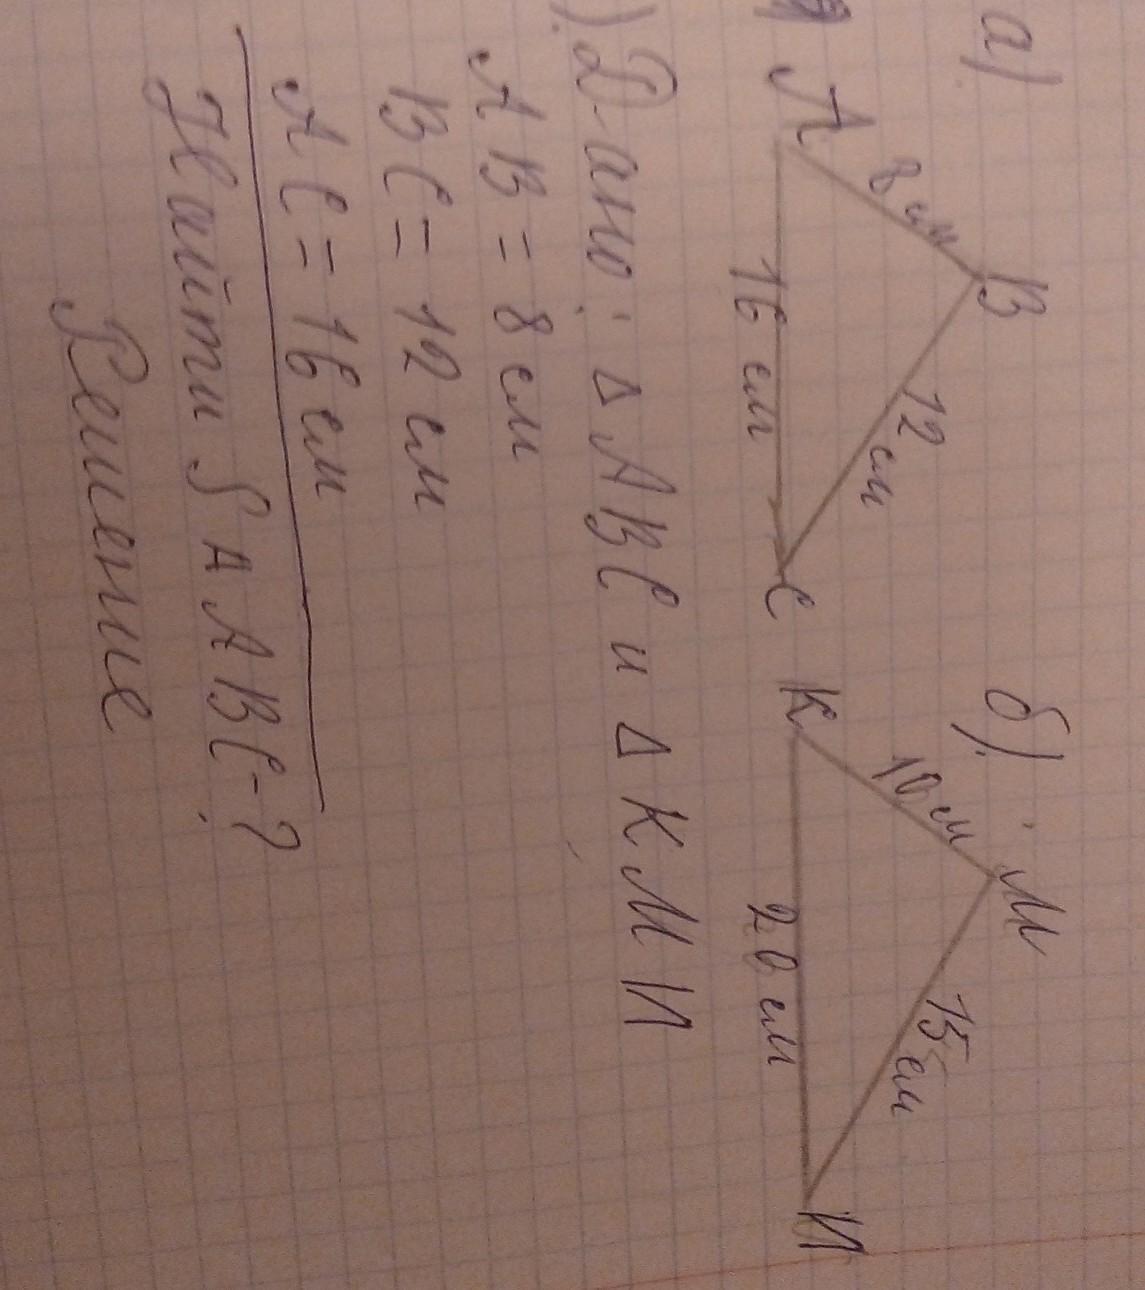 а)
б)
A
8 см
B
12 см
16 см
C
К
10 см
М
15 см
20 см
N
Дано: Δ ABC и Δ KMN
AB = 8 см
BC = 12 см
AC = 16 см
Найти S Δ ABC - ?
Решение